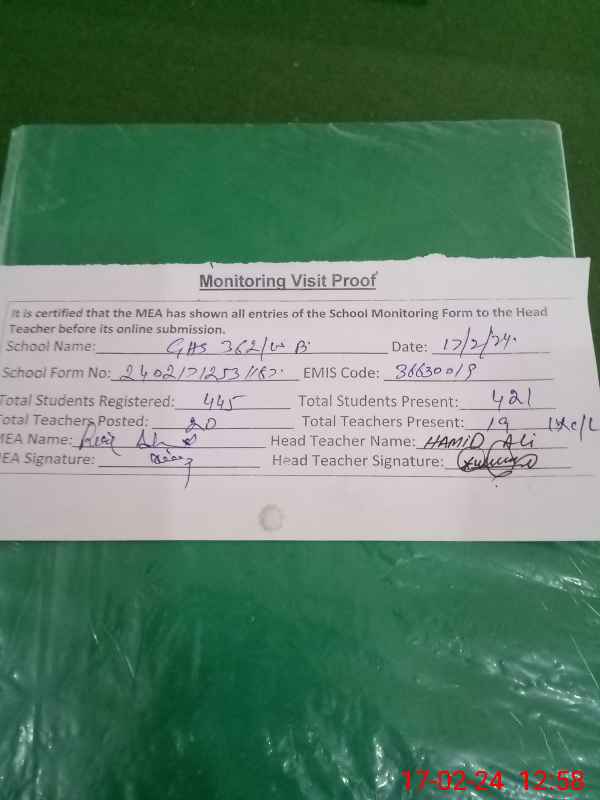 Monitoring Visit Proof
It is certified that the MEA has shown all entries of the School Monitoring Form to the Head
Teacher before its online submission.
School Name: GHS 362/WB Date: 17/2/24.
School Form No: EMIS Code: 36630019
Total Students Registered: 445 Total Students Present: 421
Total Teachers Posted: 20 Total Teachers Present: 19 1xc/L
MEA Name: Head Teacher Name: HAMID Ali
MEA Signature: Head Teacher Signature:
17-02-24 12:58